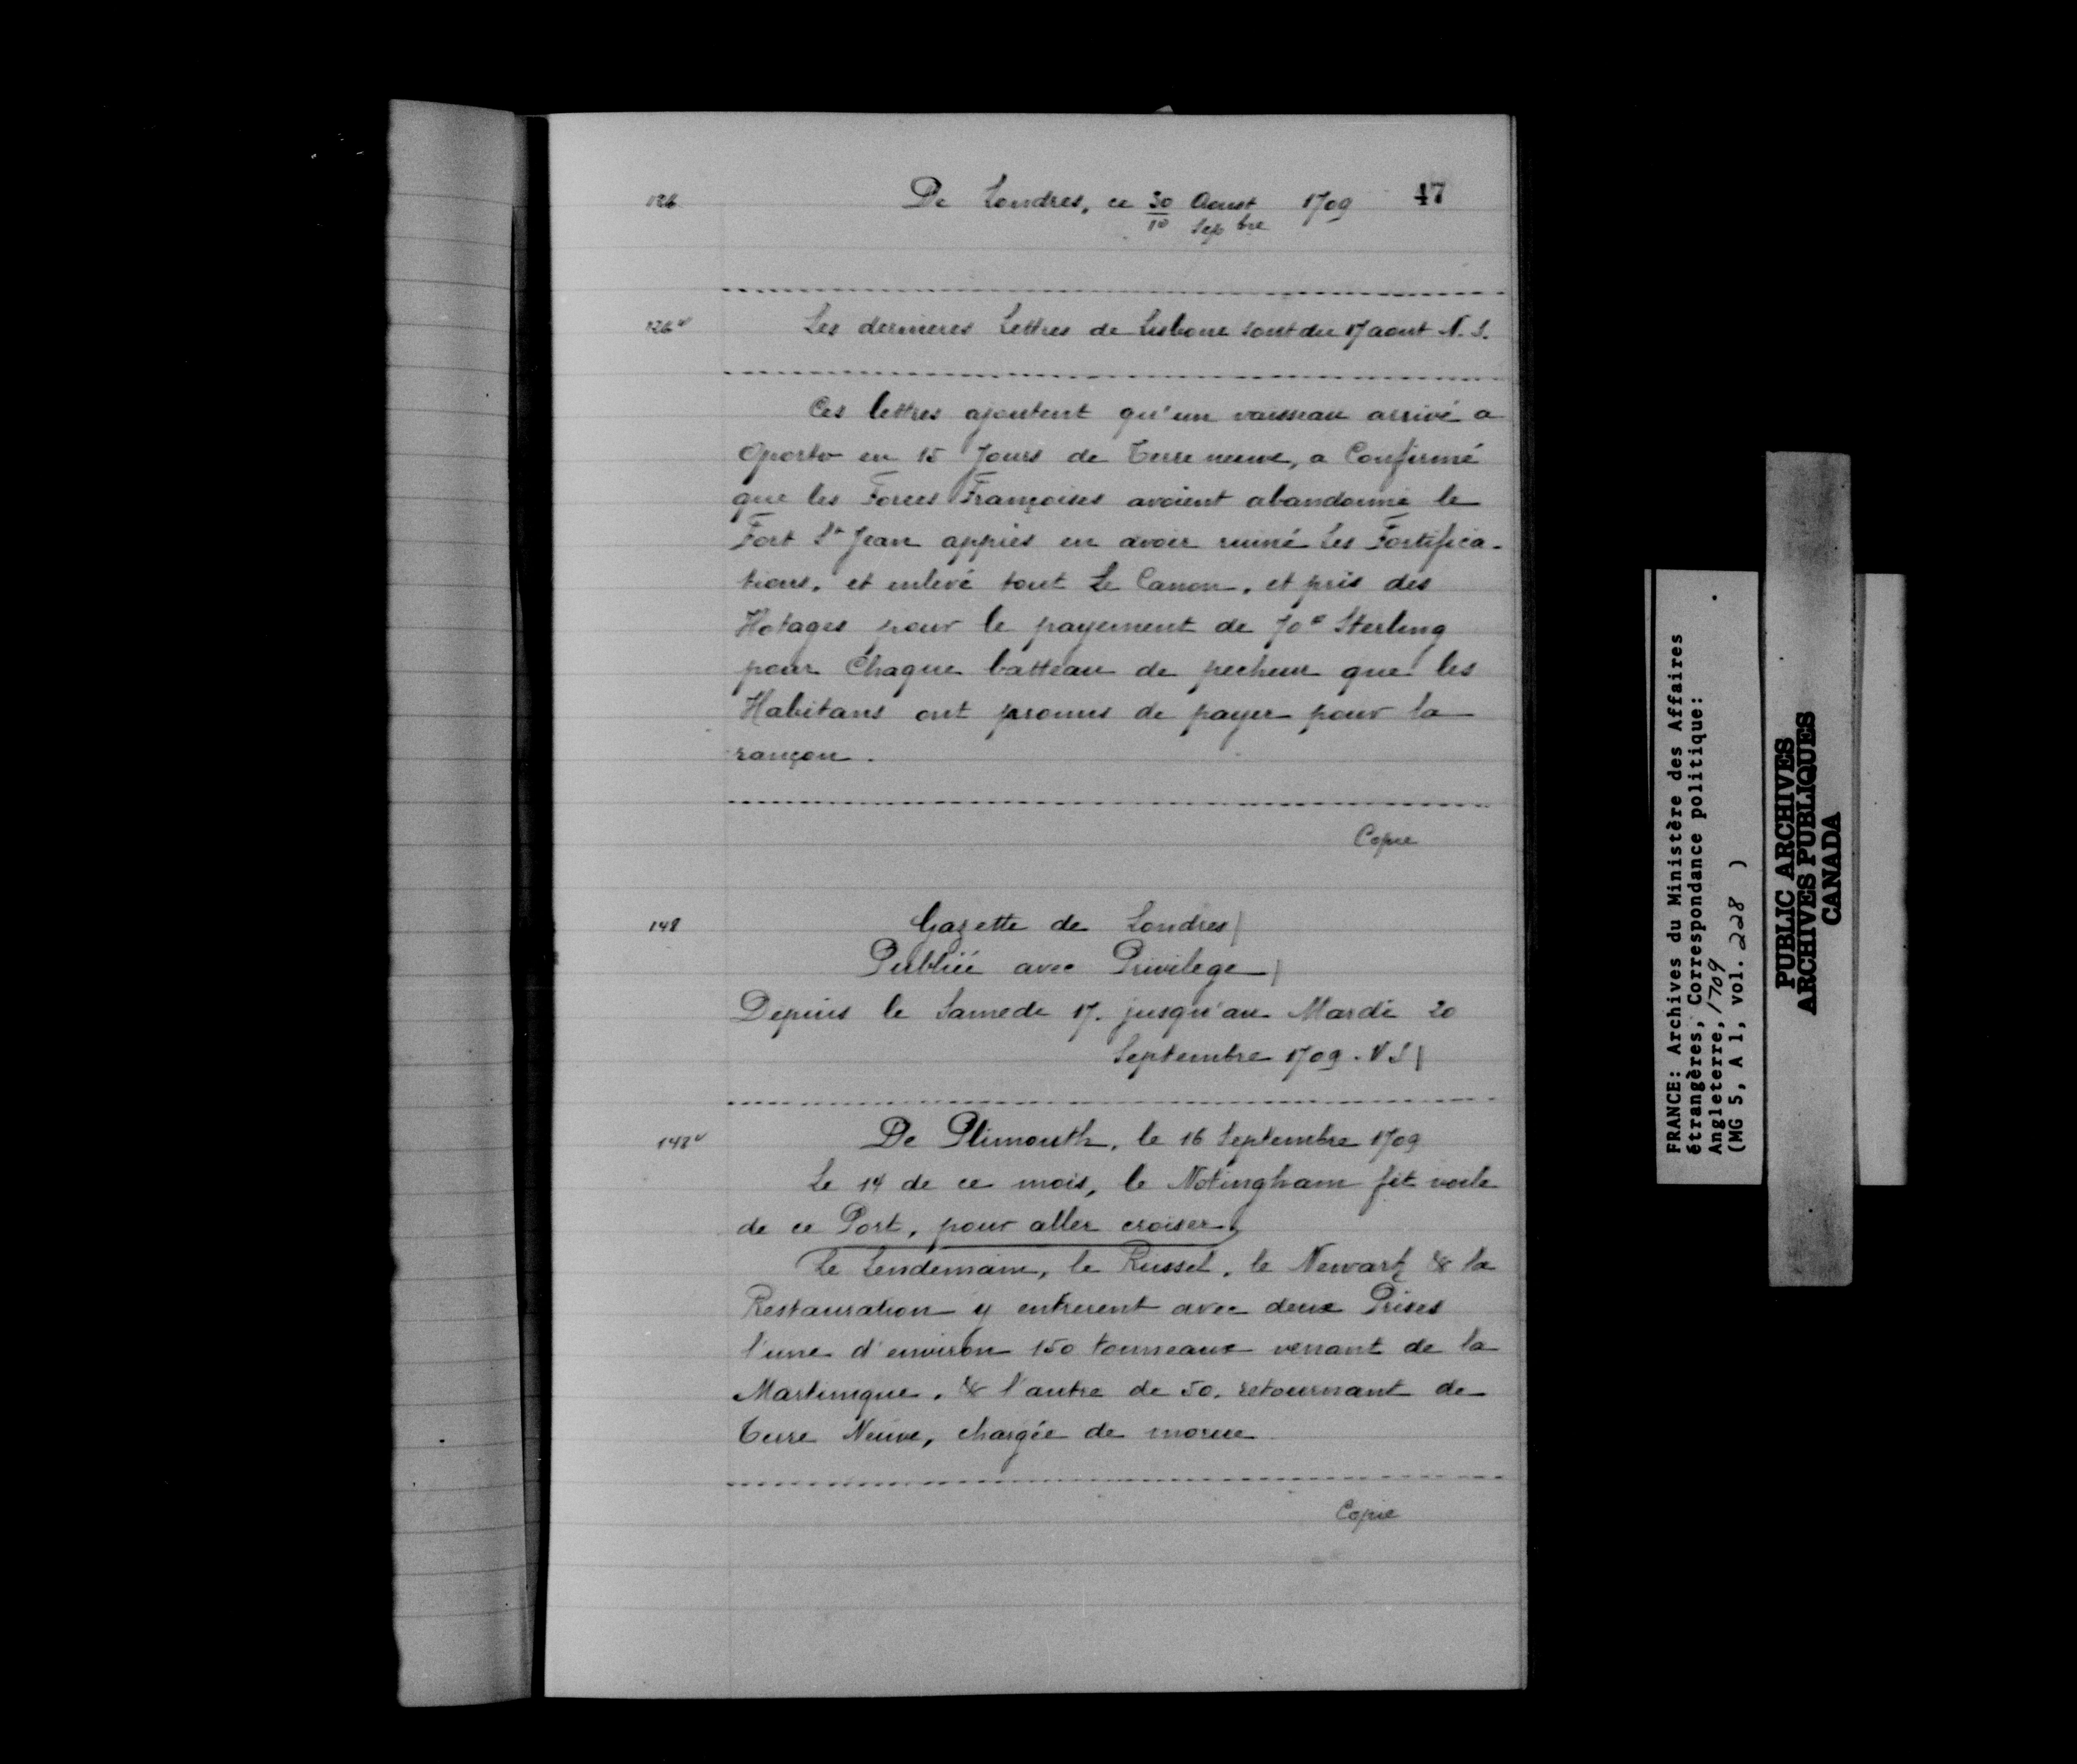 47
126 De Londres, ce 30 Aoust 1709
10 Sepbre
126v Les dernieres Lettres de Lisbone sont du 17 aout N. S.
Ces lettres ajoutent qu'un vaisseau arrivé a
Oporto en 15 Jours de Terre neuve, a Confirmé
que les Forces Françoises avoient abandonné le
Fort St Jean apprès en avoir ruiné Les Fortifica-
tions, et enlevé tout Le Canon, et pris des
Hotages pour le payement de Sterling
pour Chaque batteau de pecheur que les
Habitans ont promis de payer pour la
rançon.
Copie
148 Gazette de Londres
Publiée avec Privilege
Depuis le Samedi 17. jusqu'au Mardi 20
Septembre 1709. N S
148v De Plimouth, le 16 Septembre 1709
Le 14 de ce mois, le Notingham fit voile
de ce Port, pour aller croiser.
Le Lendemain, le Russel, le Newark & la
Restauration y entrerent avec deux Prises
l'une d'environ 150 tonneaux venant de la
Martinique, & l'autre de 50. retournant de
Terre Neuve, chargée de morue
Copie
FRANCE: Archives du Ministère des Affaires
étrangères, Correspondance politique:
Angleterre, 1709
(MG 5, A 1, vol. 228 )
PUBLIC ARCHIVES
ARCHIVES PUBLIQUES
CANADA